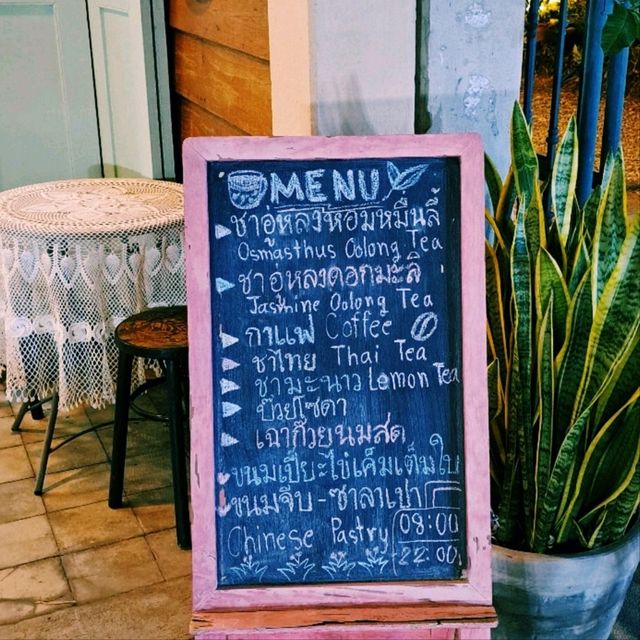 MENU
ชาอู่หลงหอมหมื่นลี้
Osmasthus Oolong Tea
ชาอู่หลงดอกมะลิ
Jasmine Oolong Tea
กาแฟ Coffee
ชาไทย Thai Tea
ชามะนาว Lemon Tea
บ๊วยโซดา
เฉาก๊วยนมสด
ขนมเปี๊ยะไข่เค็มเต็มใบ
ขนมจีบ - ซาลาเปา
Chinese Pastry
08:00
22:00